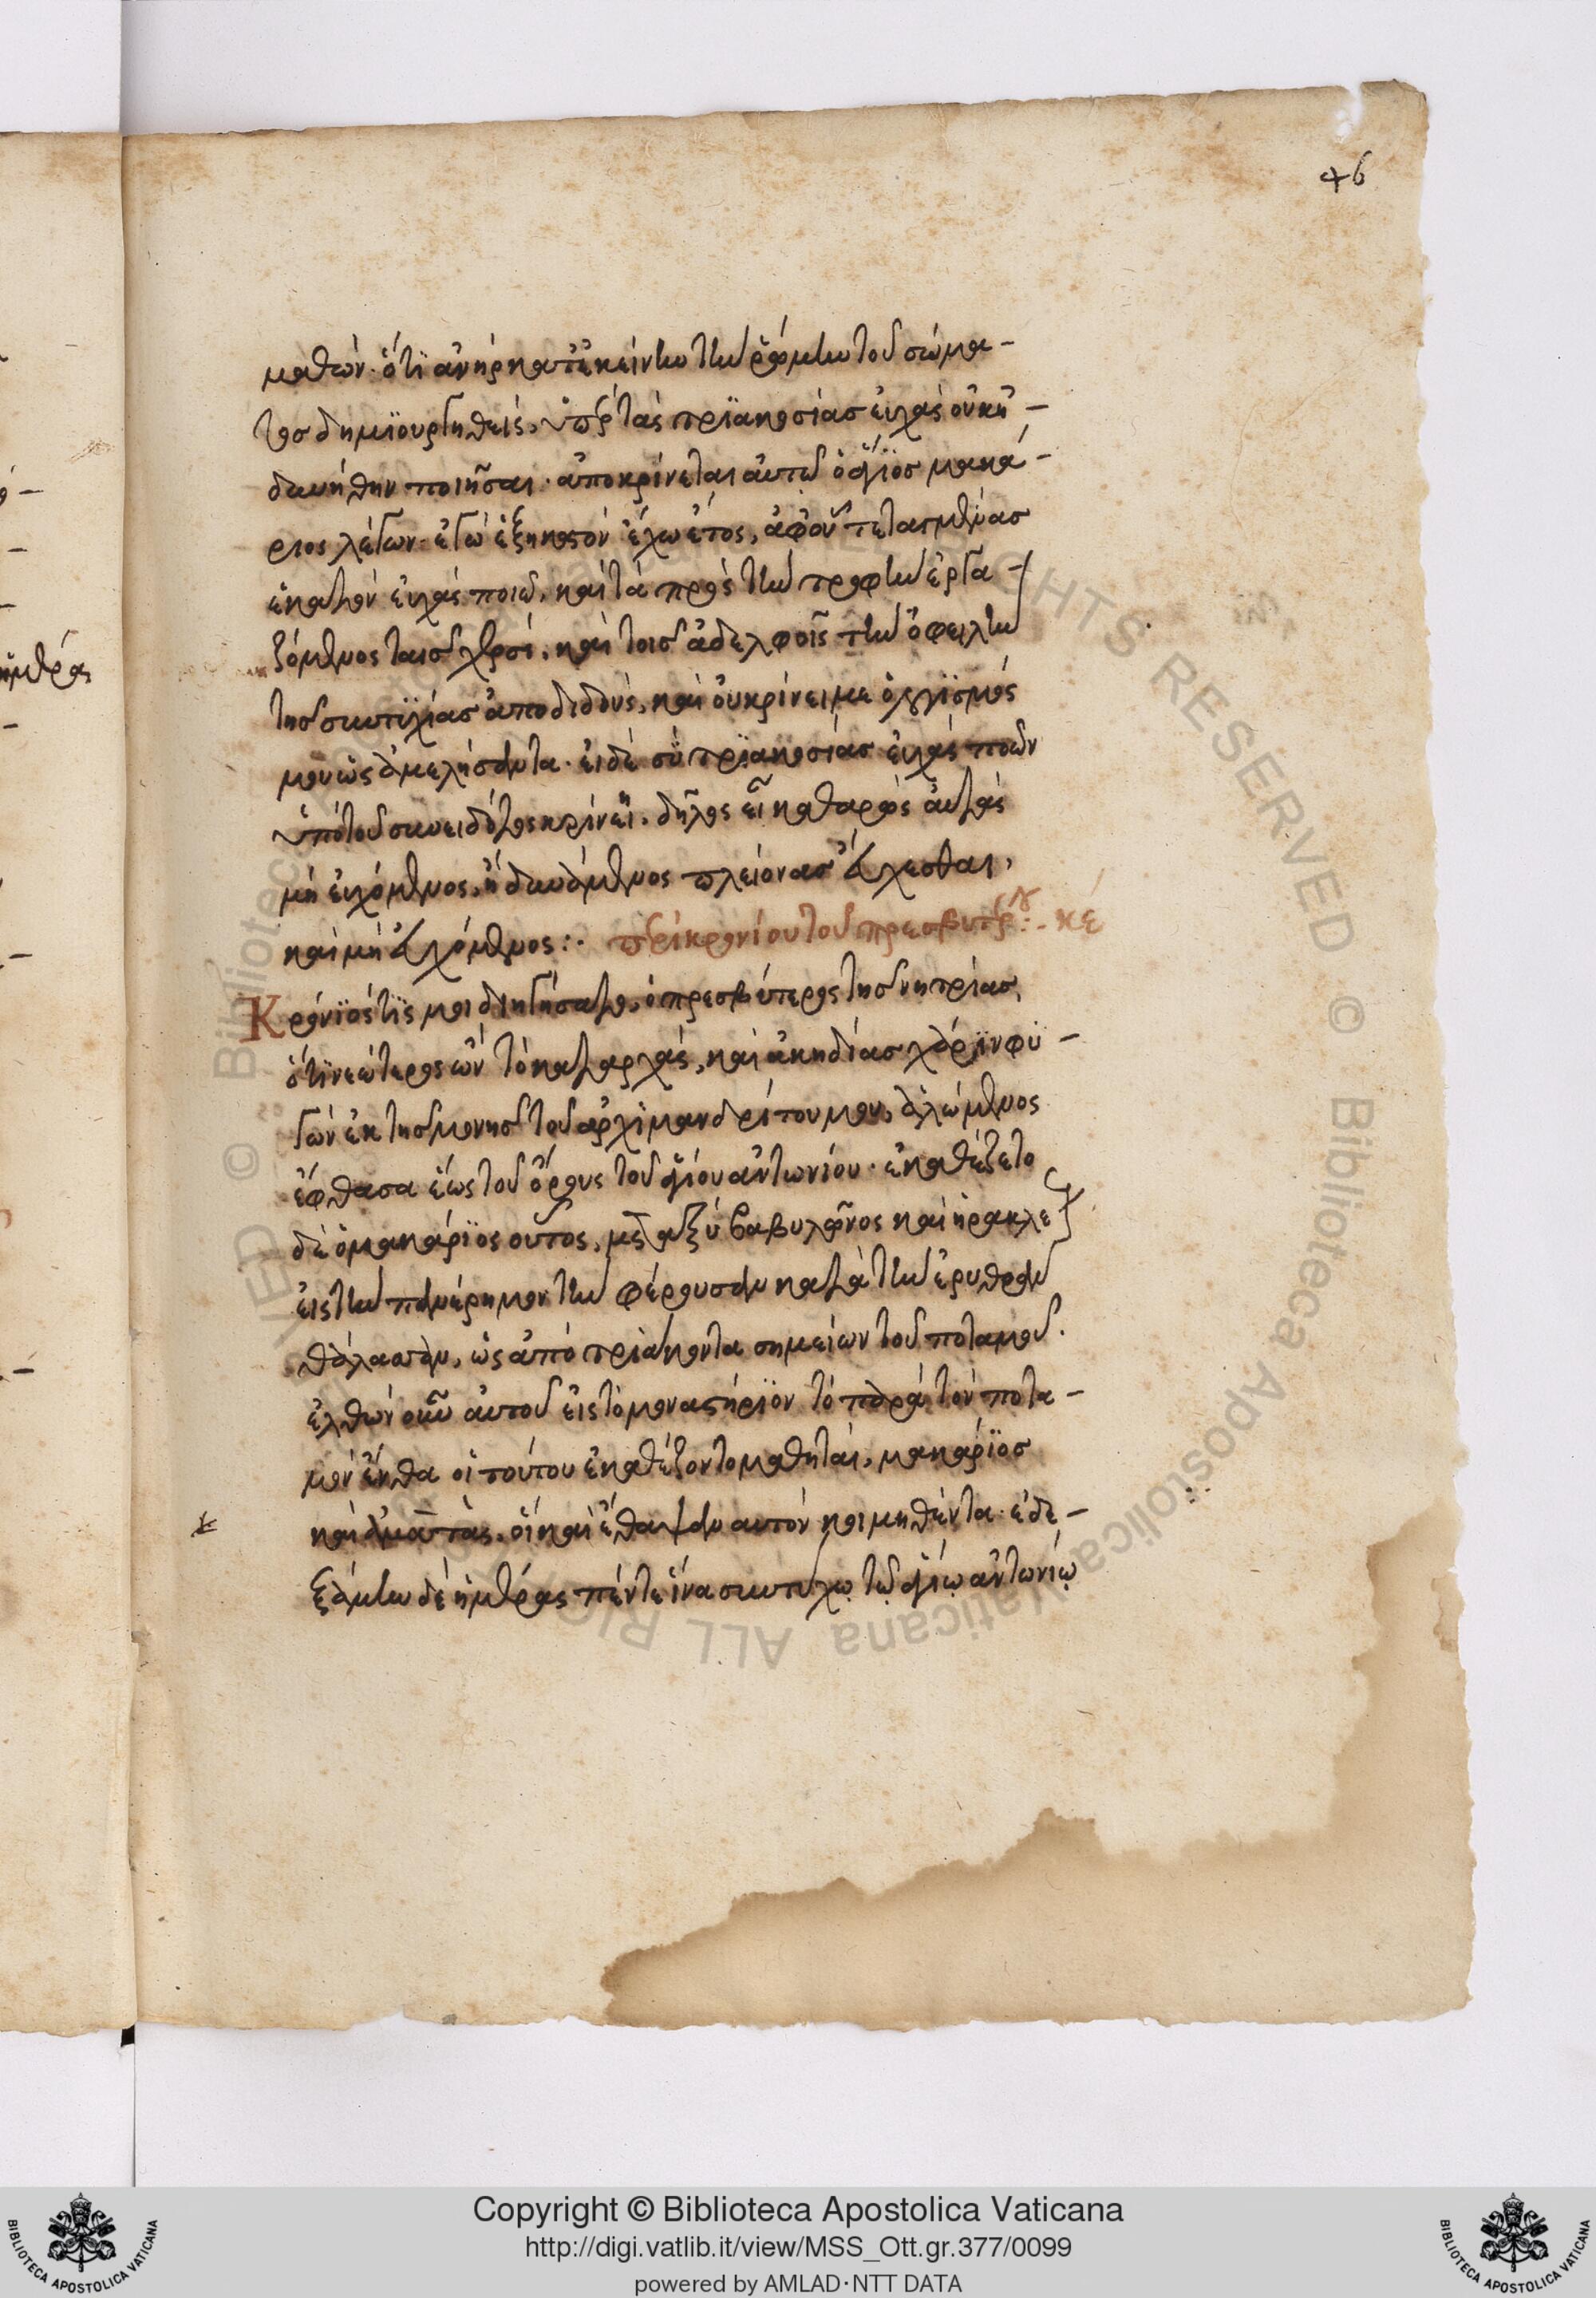 46
μαθών· ὅτι ἀνὴρ κατ' ἐκείνην τὴν ῥώμην τοῦ σώμα-
τος δημϊουργηθείς, ὑπὲρ τὰς τριακοσίας εὐχὰς οὐκ ἠ-
δυνήθην ποιῆσαι· ἀποκρίνεται αὐτῶ ὁ ἅγϊος μακά-
ριος λέγων· ἐγὼ ἑξηκοστὸν ἔχω ἔτος, ἀφ' οὗ τεταγμένας
ἑκατὸν εὐχὰς ποιῶ, καὶ τὰ πρὸς τὴν τροφὴν ἐργα-
ζόμενος ταῖς χερσὶ, καὶ τοῖς ἀδελφοῖς τὴν ὀφειλὴν
τῆς συντυχίας ἀποδιδοὺς, καὶ οὐ κρίνει με ὁ λογϊσμός
μου ὡς ἀμελήσαντα· εἰ δὲ σὺ τριακοσίας εὐχὰς ποιῶν
ὑπὸ τοῦ συνειδότος κρίνει, δῆλος εἶ καθαρῶς αὐτὰς
μὴ εὐχόμενος, ἢ δυνάμενος πλείονας εὔχεσθαι,
καὶ μὴ εὐχόμενος :· περὶ κρονίου τοῦ πρεσβυτέρου :· κε
Κρόνϊός τϊς μοι διηγήσατο, ὁ πρεσβύτερος τῆς νητρίας,
ὅτι νεώτερος ὢν τὸ καταρχὰς, καὶ ἀκηδίας χάριν φυ-
γὼν ἐκ τῆς μονῆς τοῦ ἀρχιμανδρίτου μου, ἀλώμενος
ἔφθασα ἕως τοῦ ὄρους τοῦ ἁγίου ἀντωνίου· ἐκαθέζετο
δὲ ὁ μακάριος οὗτος, μεταξὺ βαβυλῶνος καὶ ἡρακλε
εἰς τὴν πανέρημον τὴν φέρουσαν κατὰ τὴν ἐρυθρὰν
θάλασσαν, ὡς ἀπὸ τριάκοντα σημείων τοῦ ποταμοῦ.
ἐλθὼν οὖν αὐτοῦ εἰς τὸ μοναστήριον τὸ παρὰ τὸν ποτα-
μὸν ἔνθα οἱ τούτου ἐκαθέζοντο μαθηταὶ, μακάριος
καὶ ἀμάτας, οἳ καὶ ἔθαψαν αὐτὸν κοιμηθέντα· ἐδε-
ξάμην δὲ ἡμέρας πέντε ἵνα συντύχω τῶ ἁγίω ἀντωνίω
Copyright © Biblioteca Apostolica Vaticana
http://digi.vatlib.it/view/MSS_Ott.gr.377/0099
powered by AMLAD·NTT DATA